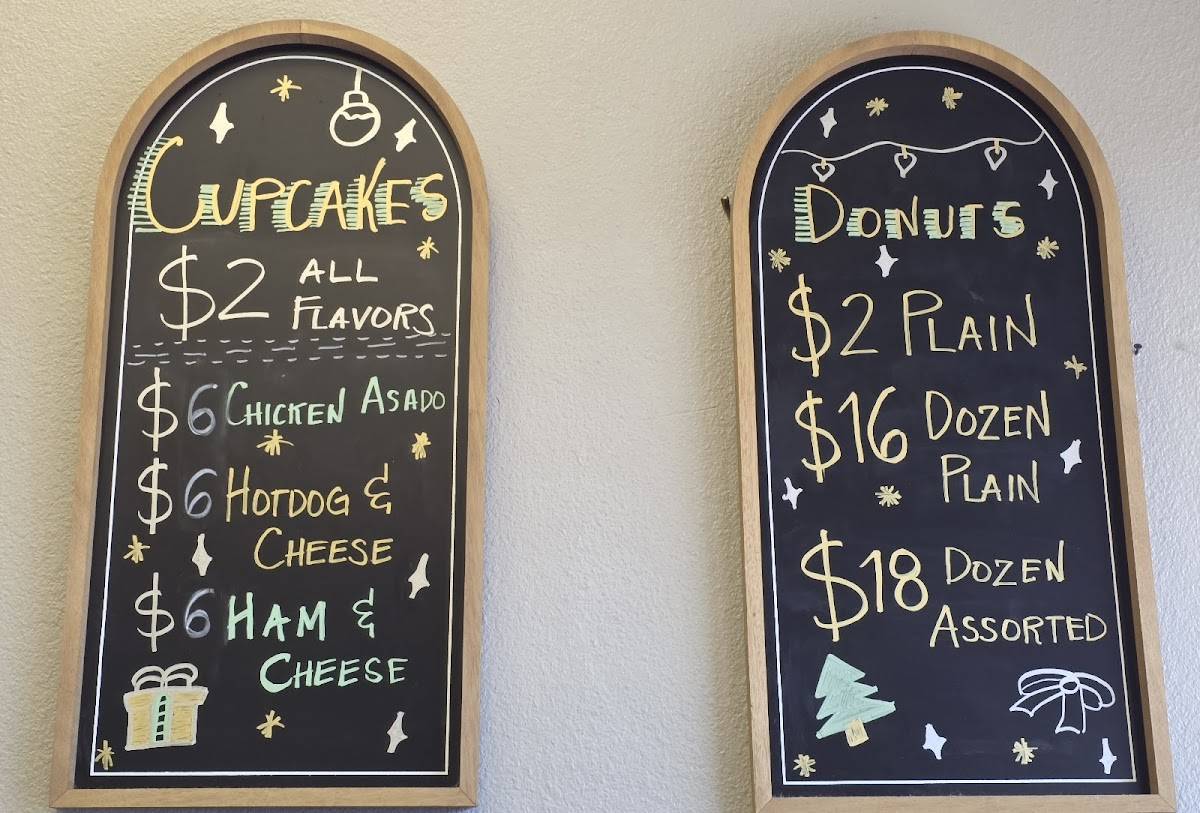 CUPCAKES
$2 ALL
FLAVORS
$6 CHICKEN ASADO
$6 HOTDOG &
CHEESE
$6 HAM &
CHEESE
DONUTS
$2 PLAIN
$16 DOZEN
PLAIN
$18 DOZEN
ASSORTED